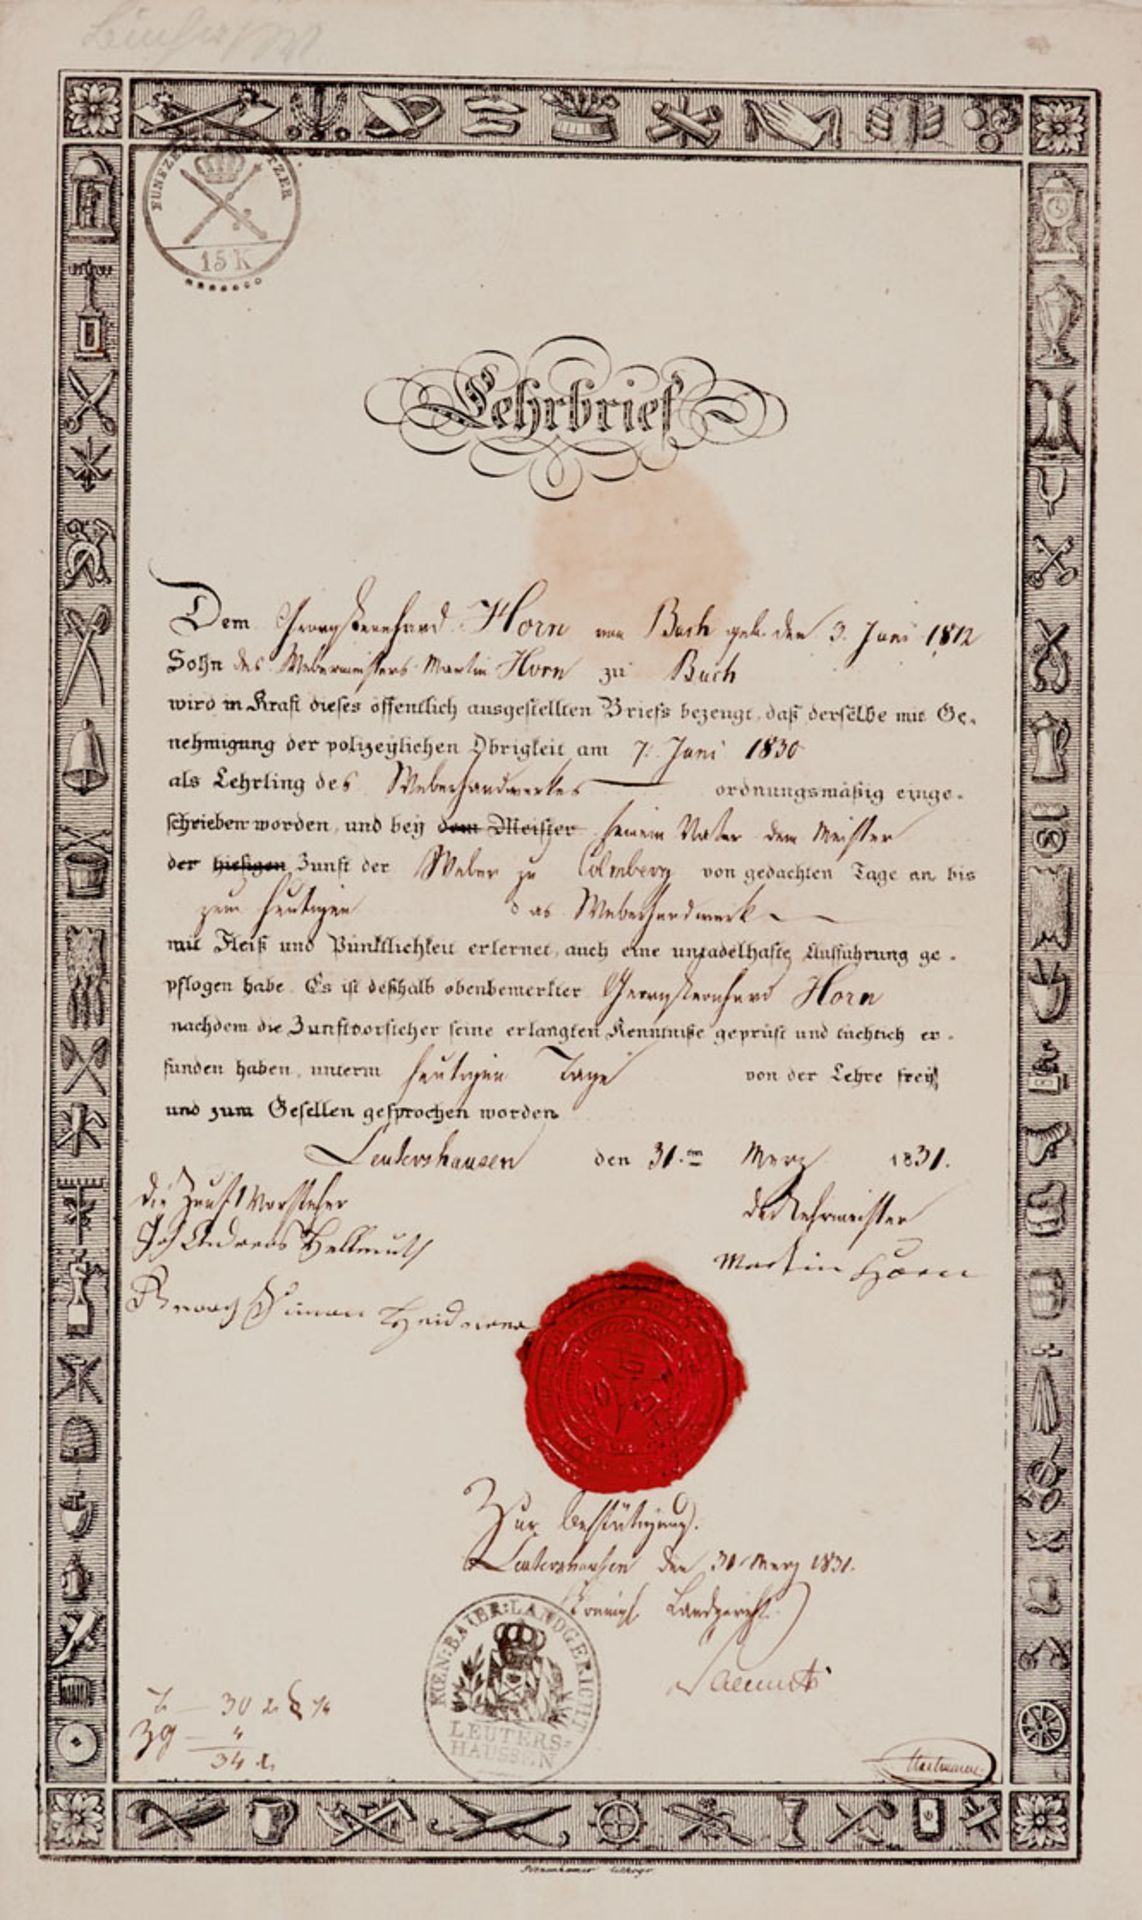 FÜNFZEHN
15 K
Lehrbrief
Dem Georg Bernhard Horn von Buch geb. den 3. Juni 1812
Sohn des Webermeisters Martin Horn zu Buch
wird in Kraft dieses öffentlich ausgestellten Briefs bezeugt, daß derselbe mit Ge-
nehmigung der polizeylichen Obrigkeit am 7. Juni 1830
als Lehrling des Weberhandwerkes ordnungsmäßig einge-
schrieben worden, und bey dem Meister seinem Vater dem Meister
der hiesigen Zunft der Weber zu Colmberg von gedachten Tage an bis
zum heutigen das Weberhandwerk
mit Fleiß und Pünktlichkeit erlernet, auch eine untadelhafte Aufführung ge-
pflogen habe. Es ist deßhalb obenbemerkter Georg Bernhard Horn
nachdem die Zunftvorsteher seine erlangten Kenntniße geprüft und tüchtich er-
funden haben, unterm heutigen Tage von der Lehre frey
und zum Gesellen gesprochen worden
Leutershausen den 31.ten Merz 1831.
Die Zunft Vorsteher
der Lehrmeister
Joh Andreas Hellmuth
Martin Horn
Georg Simon
Zur Bestätigung.
Leutershausen den 31 Merz 1831.
Königl. Landgericht
KOEN: BAIER: LANDGERICHT
LEUTERS-
HAUSSEN
30
39
34